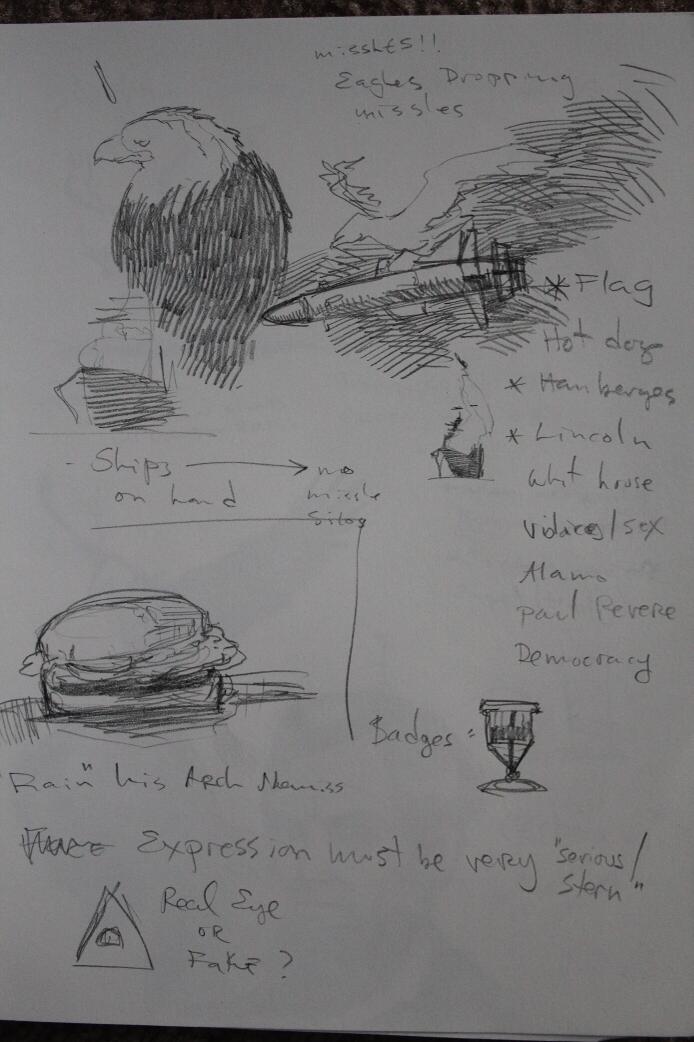 missles!!
Eagles Dropping
missles
* Flag
Hot dogs
* Hamberges
* Lincoln
Whit house
/sex
Alamo
Paul Revere
Democracy
- Ships → no
on hand
missle
Silos
Badges :
"Rain" his Arch
Expression must be very "serious/
stern"
Real Eye
OR
Fake ?